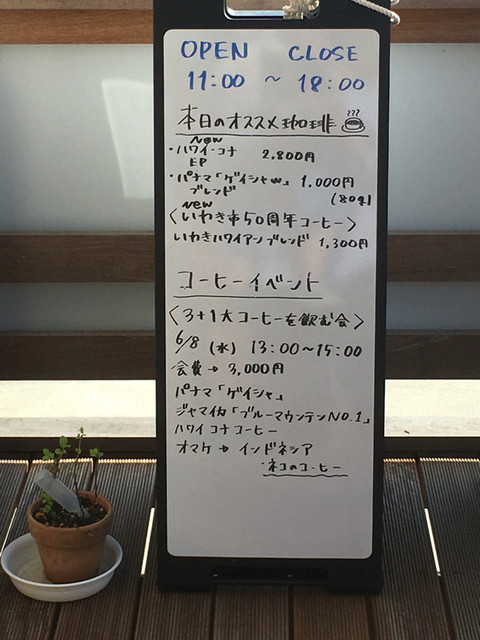 OPEN CLOSE
11:00 ~ 18:00
本日のオススメ珈琲
New
・ハワイ・コナ 2,800円
EP
・パナマ「ゲイシャw」 1,000円
ブレンド (80g)
new
<いわき市50周年コーヒー>
いわきハワイアンブレンド 1,300円
コーヒーイベント
<3+1大コーヒーを飲む会>
6/8 (水) 13:00~15:00
会費→3,000円
パナマ「ゲイシャ」
ジャマイカ「ブルーマウンテンNO.1」
ハワイコナコーヒー
オマケ→インドネシア
・ネコのコーヒー